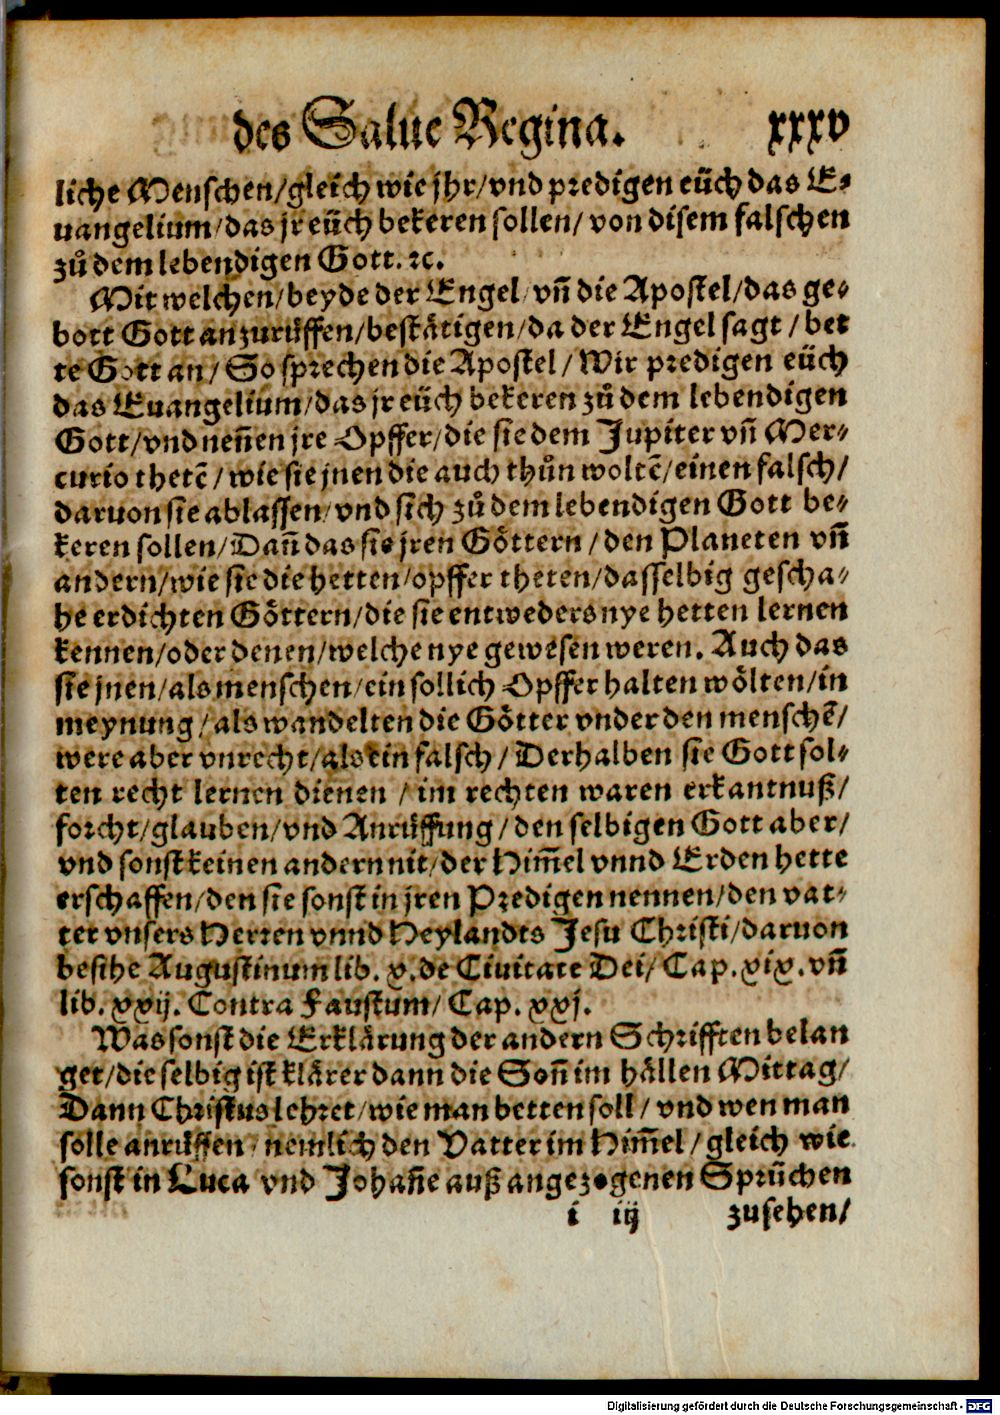 des Salue Regina. xxxv
liche Menschen/gleich wie jhr/vnd predigen eüch das E⸗
uangelium/das jr eüch bekeren sollen/ von disem falschen
zů dem lebendigen Gott. ꝛc.
Mit welchen/beyde der Engel/vñ die Apostel/das ge⸗
bott Gott anzurůffen/bestätigen/da der Engel sagt / bet
te Gott an/ So sprechen die Apostel/ Wir predigen eüch
das Euangelium/das jr eüch bekeren zů dem lebendigen
Gott/vnd neñen jre Opffer/die sie dem Jupiter vñ Mer⸗
curio thetē/wie sie jnen die auch thůn woltē/einen falsch/
daruon sie ablassen/vnd sich zů dem lebendigen Gott be⸗
keren sollen/Dañ das sie jren Göttern/den Planeten vñ
andern/wie sie die hetten/opffer theten/dasselbig gescha⸗
he erdichten Göttern/die sie entweders nye hetten lernen
kennen/oder denen/welche nye gewesen weren. Auch das
sie jnen/als menschen/ein sollich Opffer halten wölten/in
meynung/als wandelten die Götter vnder den menschē/
were aber vnrecht/als ein falsch/ Derhalben sie Gott sol⸗
ten recht lernen dienen / im rechten waren erkantnuß/
forcht/glauben/vnd Anrůffung/den selbigen Gott aber/
vnd sonst keinen andern nit/der Him̃el vnnd Erden hette
erschaffen/den sie sonst in jren Predigen nennen/den vat⸗
ter vnsers Herren vnnd Heylandts Jesu Christi/daruon
besihe Augustinum lib. x. de Ciuitate Dei/ Cap. xix. vñ
lib. xxij. Contra Faustum/ Cap. xxj.
Was sonst die Erklärung der andern Schrifften belan
get/die selbig ist klärer dann die Soñ im hällen Mittag/
Dann Christus lehret/wie man betten soll/ vnd wen man
solle anrůffen/nemlich den Vatter im Him̃el/gleich wie
sonst in Luca vnd Johañe auß angezogenen Sprüchen
i iij zusehen/
Digitalisierung gefördert durch die Deutsche Forschungsgemeinschaft - DFG